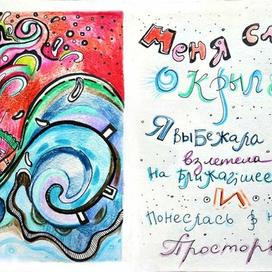 Меня сл
окрыл
Я выбежала
взлетела
на ближайшее
И
понеслась в н
Простор